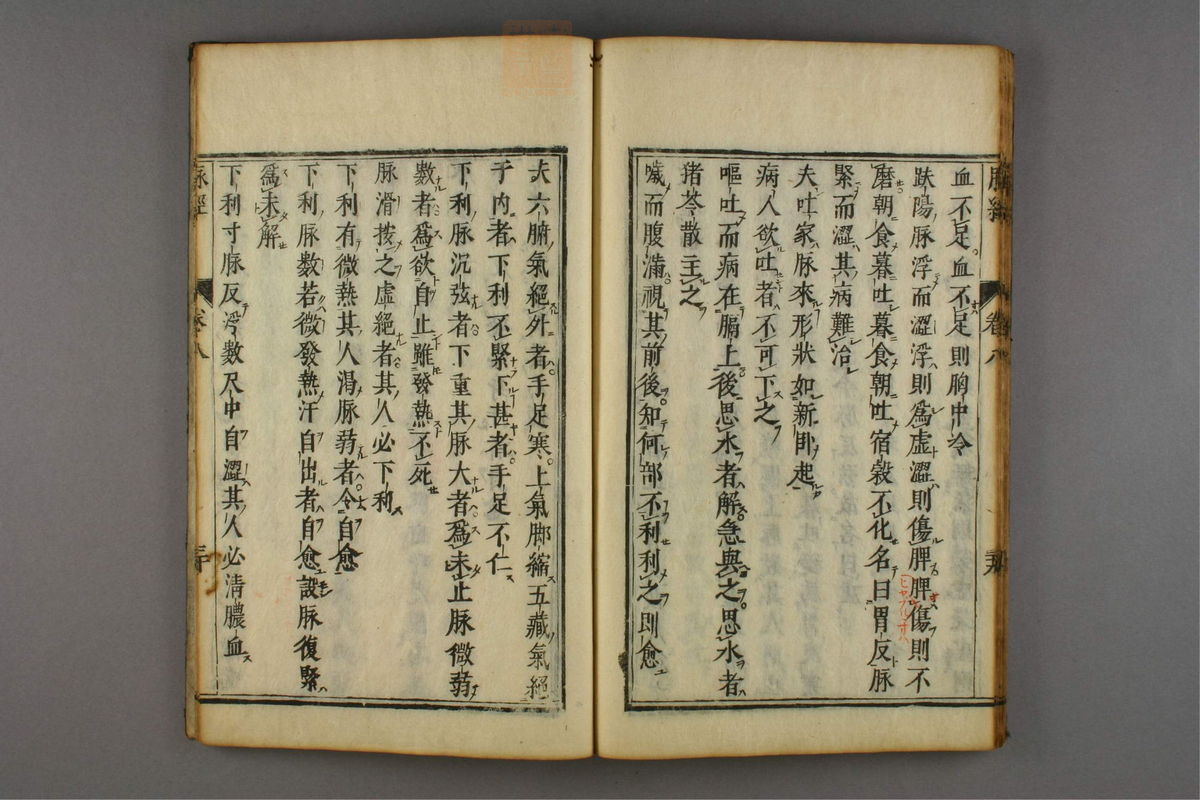 血不足血不足則胸中冷
趺陽脉浮而澀浮則爲虚澀則傷脾脾傷則不
磨朝食暮吐暮食朝吐宿穀不化名曰胃反脉
緊而澀其病難治
夫吐家脉來形狀如新臥起
病人欲吐者不可下之
嘔吐而病在膈上後思水者解急與之思水者
猪苓散主之
噦而腹滿視其前後知何部不利利之即愈
脉經
卷八
夫六腑氣絕外者手足寒上氣脚縮五藏氣絕
于内者下利不緊下甚者手足不仁
下利脉沉弦者下重其脉大者爲未止脉微弱
數者爲欲自止雖發熱不死
脉滑按之虚絕者其人必下利
下利有微熱其人渴脉弱者令自愈
下利脉數若微發熱汗自出者自愈設脉復緊
爲未解
下利寸脉反浮數尺中自澀其人必清膿血
脉經
卷八